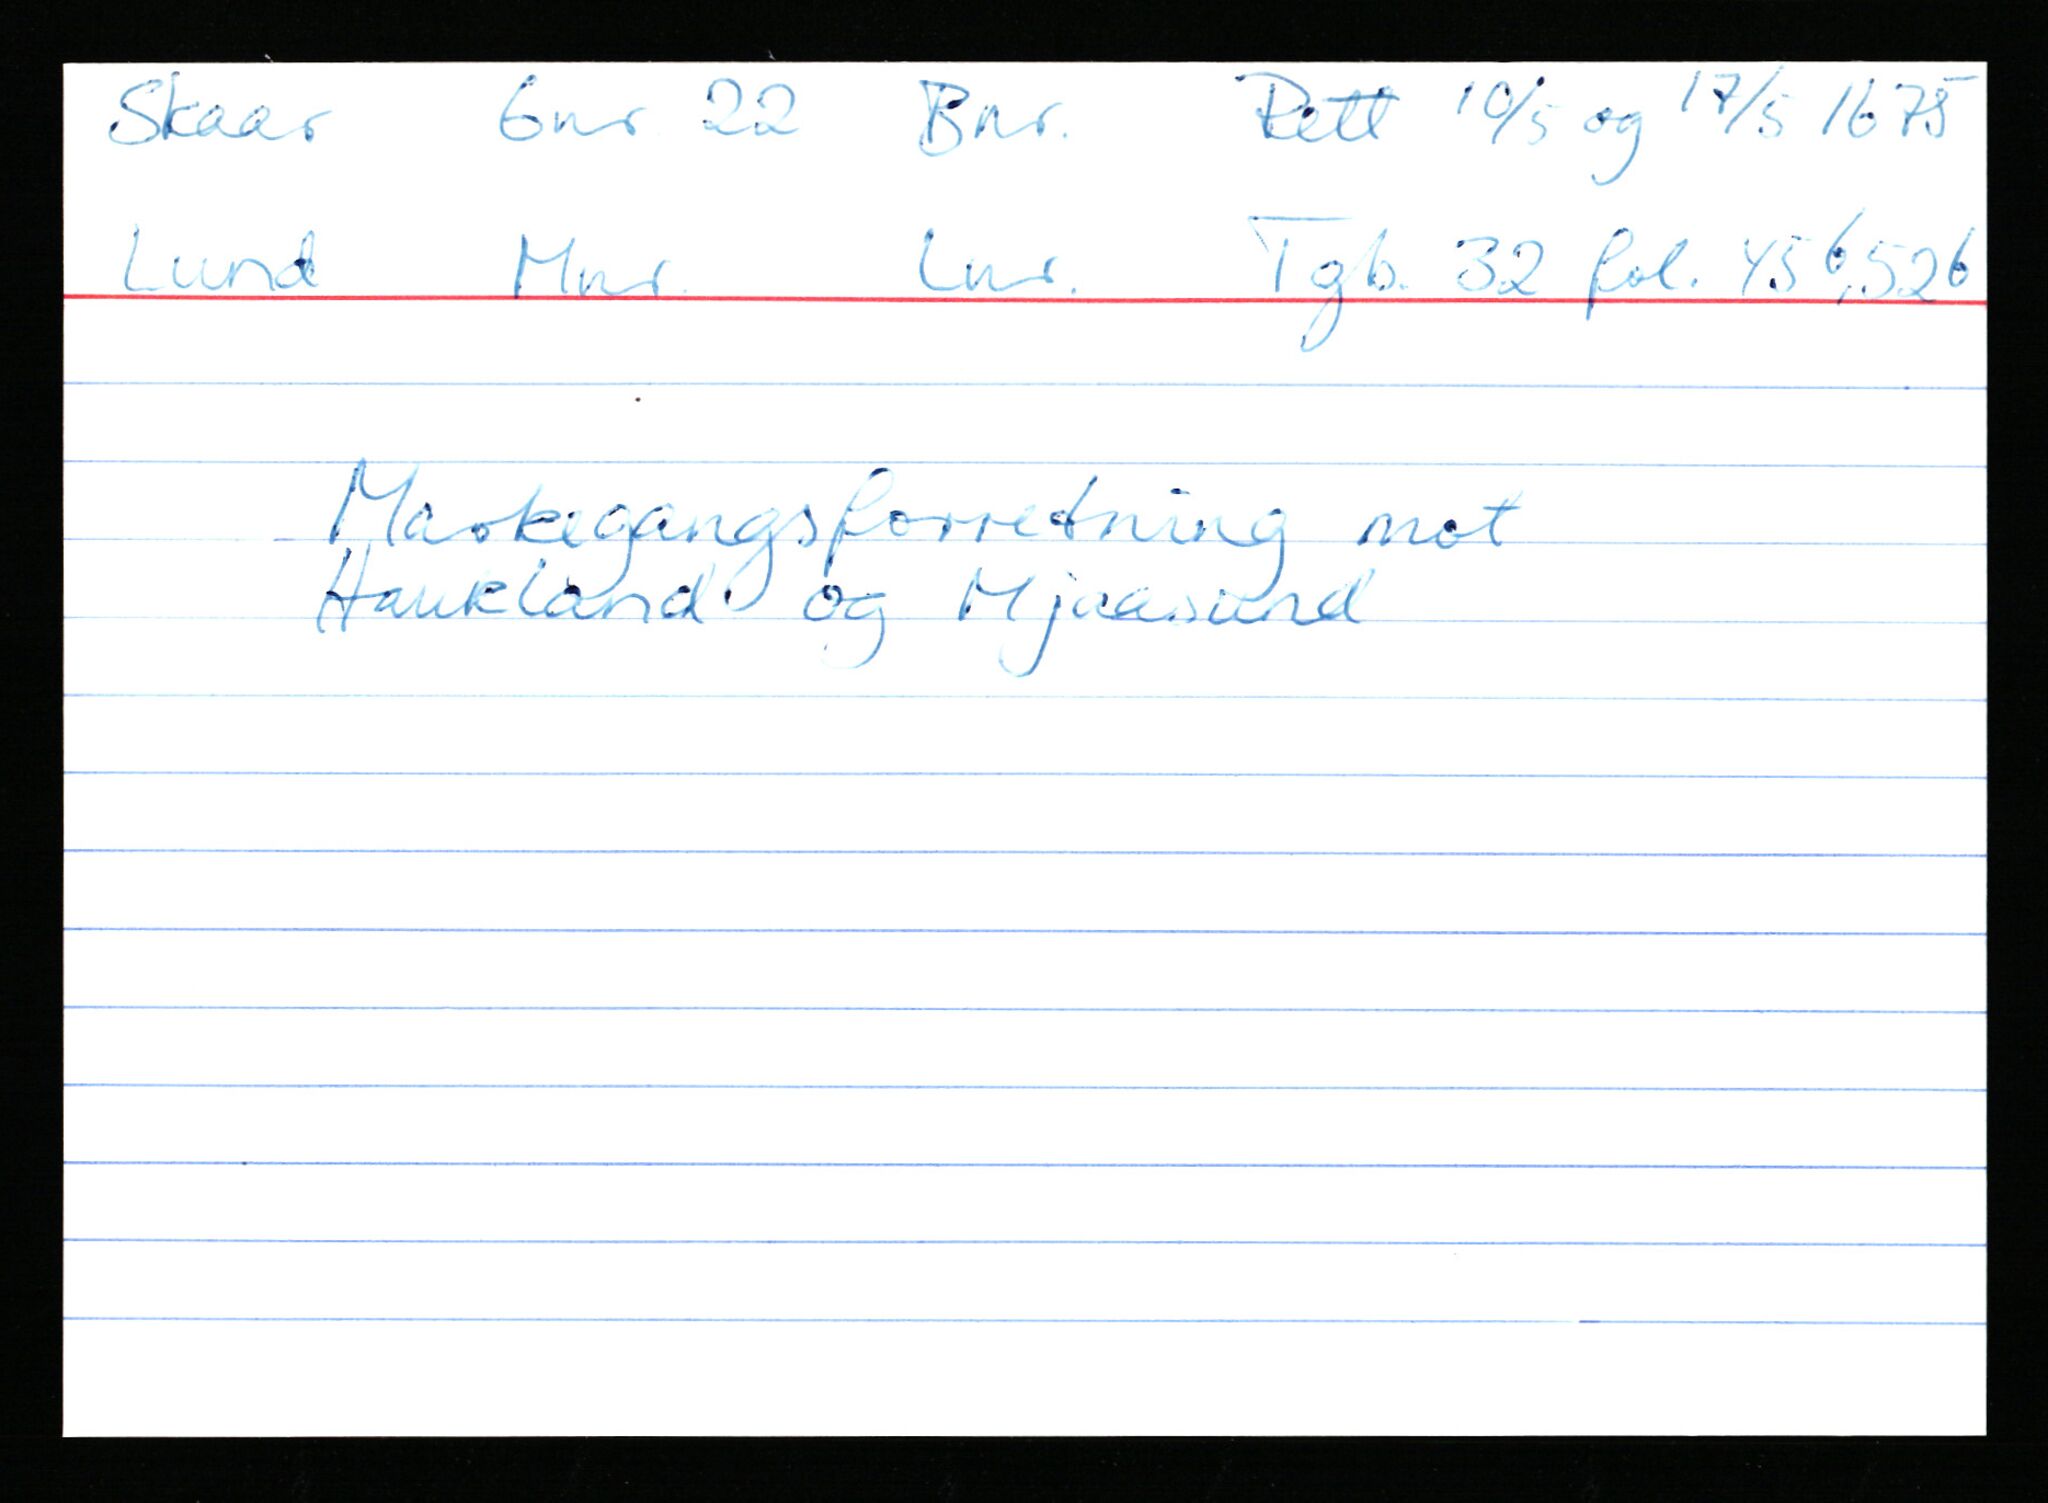 Skaar Gnr 22 Bnr. Rett 10/5 og 17/5 1675
Lund Mnr. Lnr. Tgb. 32 fol. 456, 526
Markegangsforretning mot
Haukland og Mjaasund